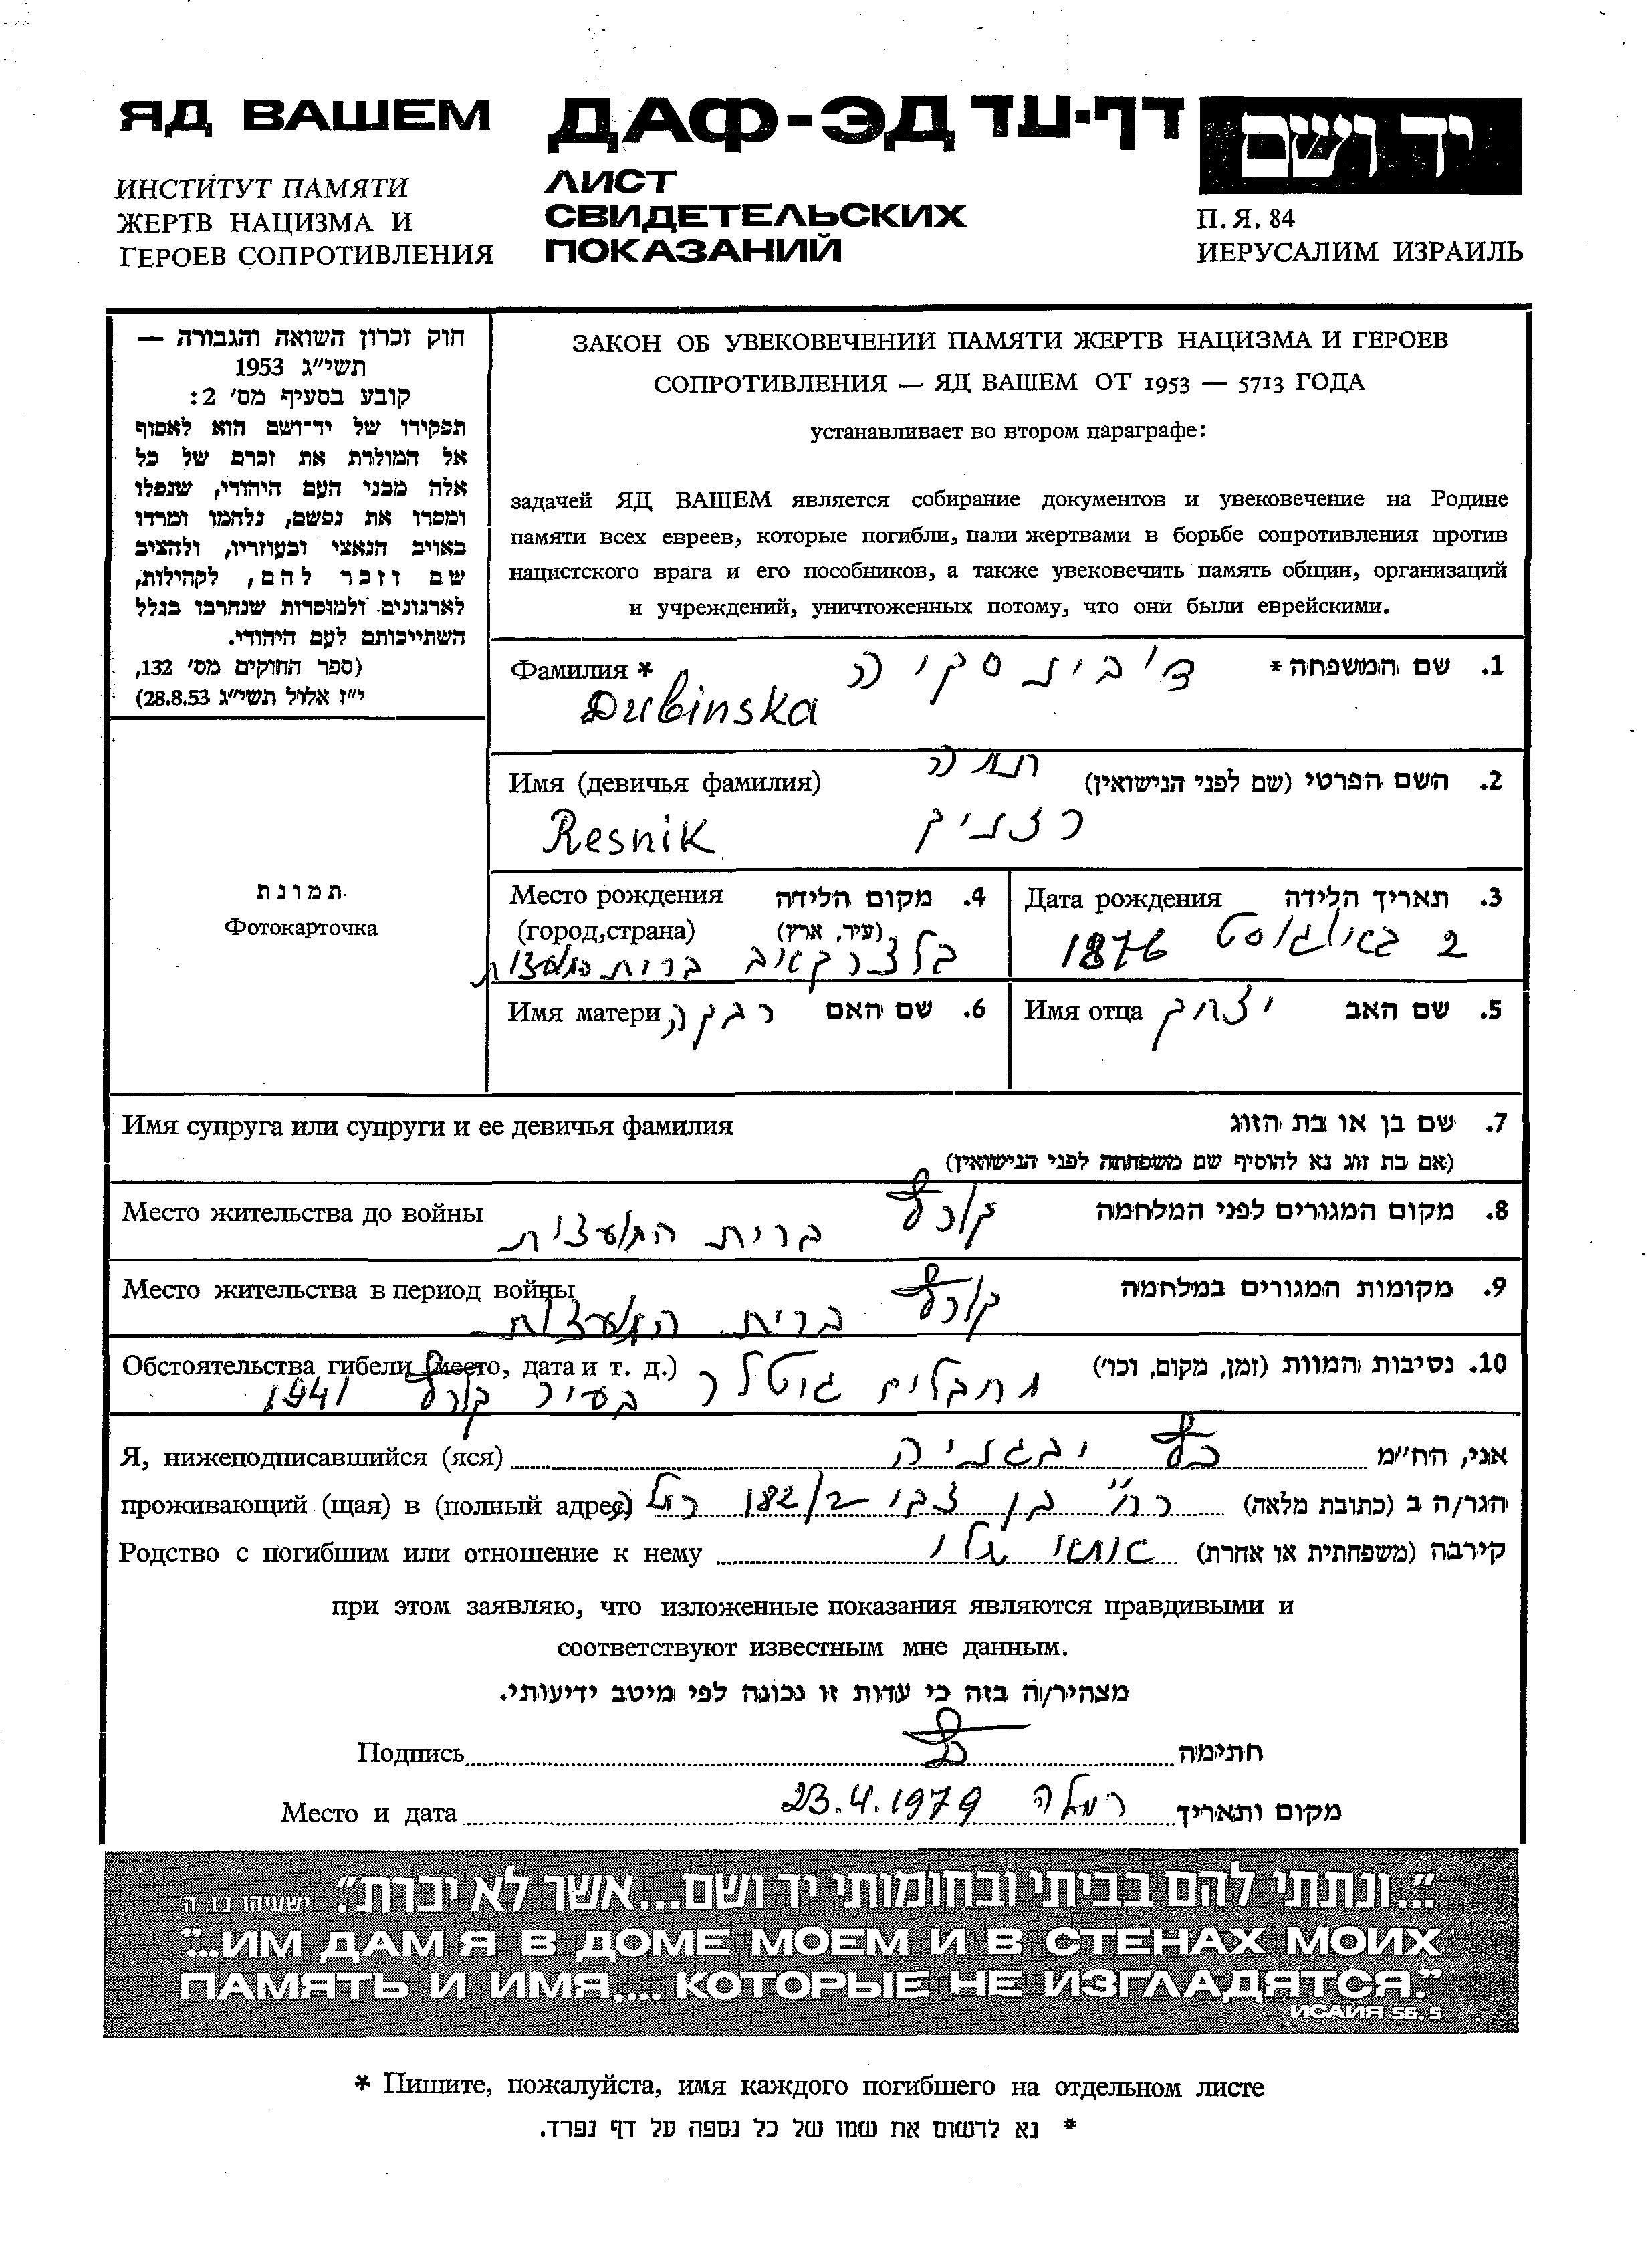 ЯД ВАШЕМ
ИНСТИТУТ ПАМЯТИ
ЖЕРТВ НАЦИЗМА И
ГЕРОЕВ СОПРОТИВЛЕНИЯ
ДАФ-ЭД דף-עד
ЛИСТ
СВИДЕТЕЛЬСКИХ
ПОКАЗАНИЙ
יד ושם
П. Я. 84
ИЕРУСАЛИМ ИЗРАИЛЬ
חוק זכרון השואה והגבורה —
תשי״ג 1953
קובע בסעיף מס׳ 2:
תפקידו של יד־ושם הוא לאסוף
אל המולדת את זכרם של כל
אלה מבני העם היהודי, שנפלו
ומסרו את נפשם, נלחמו ומרדו
באויב הנאצי ובעוזריו, ולהציב
שם וזכר להם, לקהילות,
לארגונים ולמוסדות שנחרבו בגלל
השתייכותם לעם היהודי.
(ספר החוקים מס׳ 132,
י״ז אלול תשי״ג 28.8.53)
ЗАКОН ОБ УВЕКОВЕЧЕНИИ ПАМЯТИ ЖЕРТВ НАЦИЗМА И ГЕРОЕВ
СОПРОТИВЛЕНИЯ — ЯД ВАШЕМ ОТ 1953 — 5713 ГОДА
устанавливает во втором параграфе:
задачей ЯД ВАШЕМ является собирание документов и увековечение на Родине
памяти всех евреев, которые погибли, пали жертвами в борьбе сопротивления против
нацистского врага и его пособников, а также увековечить память общин, организаций
и учреждений, уничтоженных потому, что они были еврейскими.
תמונת
Фотокарточка
Фамилия * 1. שם המשפחה *
Dubinska
Имя (девичья фамилия) 2. השם הפרטי (שם לפני הנישואין)
Resnik רזניק
Дата рождения 3. תאריך הלידה
2 באוגוסט 1876
Место рождения 4. מקום הלידה
(город,страна) (עיר, ארץ)
ברית המועצות
Имя отца יצחק 5. שם האב
Имя матери רבקה 6. שם האם
Имя супруга или супруги и ее девичья фамилия 7. שם בן או בת הזוג
(אם בת זוג נא להוסיף שם משפחתה לפני הנישואין)
Место жительства до войны 8. מקום המגורים לפני המלחמה
ברית המועצות
Место жительства в период войны 9. מקומות המגורים במלחמה
ברית המועצות
Обстоятельства гибели (место, дата и т. д.) 10. נסיבות המוות (זמן, מקום, וכו׳)
בעיר 1941
Я, нижеподписавшийся (яся) אני, הח״מ
проживающий (щая) в (полный адрес) הגר/ה ב (כתובת מלאה) רח״ בן צבי 182/2 רמלה
Родство с погибшим или отношение к нему קירבה (משפחתית או אחרת)
при этом заявляю, что изложенные показания являются правдивыми и
соответствуют известным мне данным.
מצהיר/ה בזה כי עדות זו נכונה לפי מיטב ידיעותי.
Подпись חתימה
Место и дата 23.4.1979 רמלה מקום ותאריך
״...ונתתי להם בביתי ובחומותי יד ושם...אשר לא יכרת״. ישעיהו נ״ו ה׳
"...ИМ ДАМ Я В ДОМЕ МОЕМ И В СТЕНАХ МОИХ
ПАМЯТЬ И ИМЯ.... КОТОРЫЕ НЕ ИЗГЛАДЯТСЯ."
ИСАИЯ 56.5
* Пишите, пожалуйста, имя каждого погибшего на отдельном листе
* נא לרשום את שמו של כל נספה על דף נפרד.